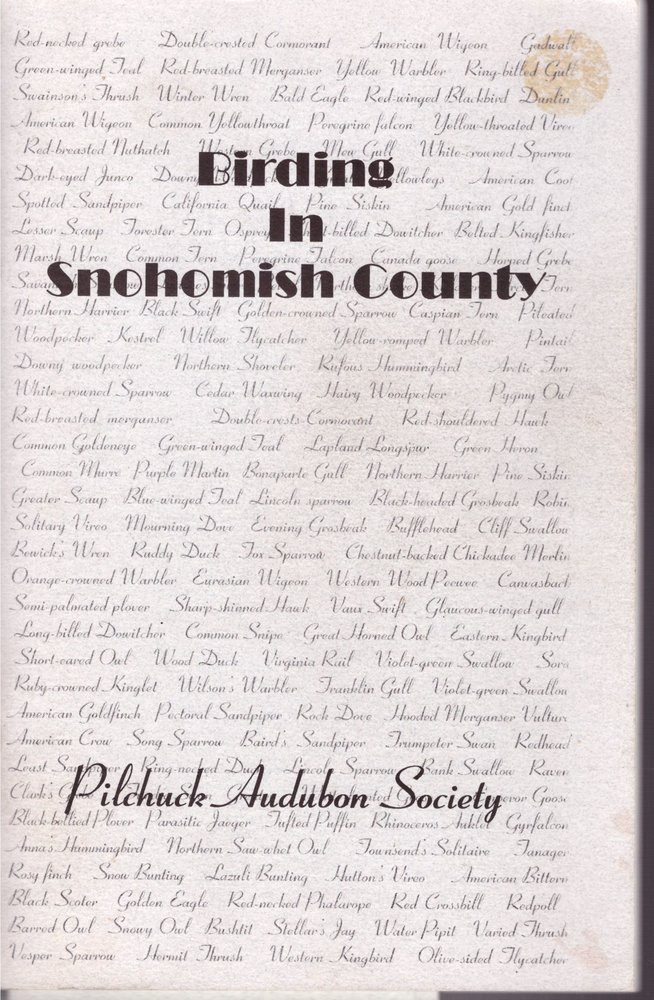 Red-necked grebe Double-crested Cormorant American Wigeon Gadwall
Green-winged Teal Red-breasted Merganser Yellow Warbler Ring-billed Gull
Swainson's Thrush Winter Wren Bald Eagle Red-winged Blackbird Dunlin
American Wigeon Common Yellowthroat Peregrine falcon Yellow-throated Vireo
Red-breasted Nuthatch Western Grebe Mew Gull White-crowned Sparrow
Birding
Dark-eyed Junco American Coot
Spotted Sandpiper California Quail Pine Siskin American Gold finch
In
Lesser Scaup Forester Tern Osprey Dowitcher Belted Kingfisher
Marsh Wren Common Tern Peregrine Falcon Canada goose Horned Grebe
Snohomish County
Tern
Northern Harrier Black Swift Golden-crowned Sparrow Caspian Tern Pileated
Woodpecker Kestrel Willow Flycatcher Yellow-romped Warbler Pintail
Downy woodpecker Northern Shoveler Rufous Hummingbird Arctic Tern
White-crowned Sparrow Cedar Waxwing Hairy Woodpecker Pygmy Owl
Red-breasted merganser Double-crests-Cormorant Red-shouldered Hawk
Common Goldeneye Green-winged Teal Lapland Longspur Green Heron
Common Murre Purple Martin Bonaparte Gull Northern Harrier Pine Siskin
Greater Scaup Blue-winged Teal Lincoln sparrow Black-headed Grosbeak Robin
Solitary Vireo Mourning Dove Evening Grosbeak Bufflehead Cliff Swallow
Bewick's Wren Ruddy Duck Fox Sparrow Chestnut-backed Chickadee Merlin
Orange-crowned Warbler Eurasian Wigeon Western Wood Peewee Canvasback
Semi-palmated plover Sharp-shinned Hawk Vaux Swift Glaucous-winged gull
Long-billed Dowitcher Common Snipe Great Horned Owl Eastern Kingbird
Short-eared Owl Wood Duck Virginia Rail Violet-green Swallow Sora
Ruby-crowned Kinglet Wilson's Warbler Franklin Gull Violet-green Swallow
American Goldfinch Pectoral Sandpiper Rock Dove Hooded Merganser Vulture
American Crow Song Sparrow Baird's Sandpiper Trumpeter Swan Redhead
Least Sandpiper Ring-necked Duck Lincoln Sparrow Bank Swallow Raven
Pilchuck Audubon Society
Clark's Goose
Black-bellied Plover Parasitic Jaeger Tufted Puffin Rhinoceros Auklet Gyrfalcon
Anna's Hummingbird Northern Saw-whet Owl Townsend's Solitaire Tanager
Rosy finch Snow Bunting Lazuli Bunting Hutton's Vireo American Bittern
Black Scoter Golden Eagle Red-necked Phalarope Red Crossbill Redpoll
Barred Owl Snowy Owl Bushtit Stellar's Jay Water Pipit Varied Thrush
Vesper Sparrow Hermit Thrush Western Kingbird Olive-sided Flycatcher